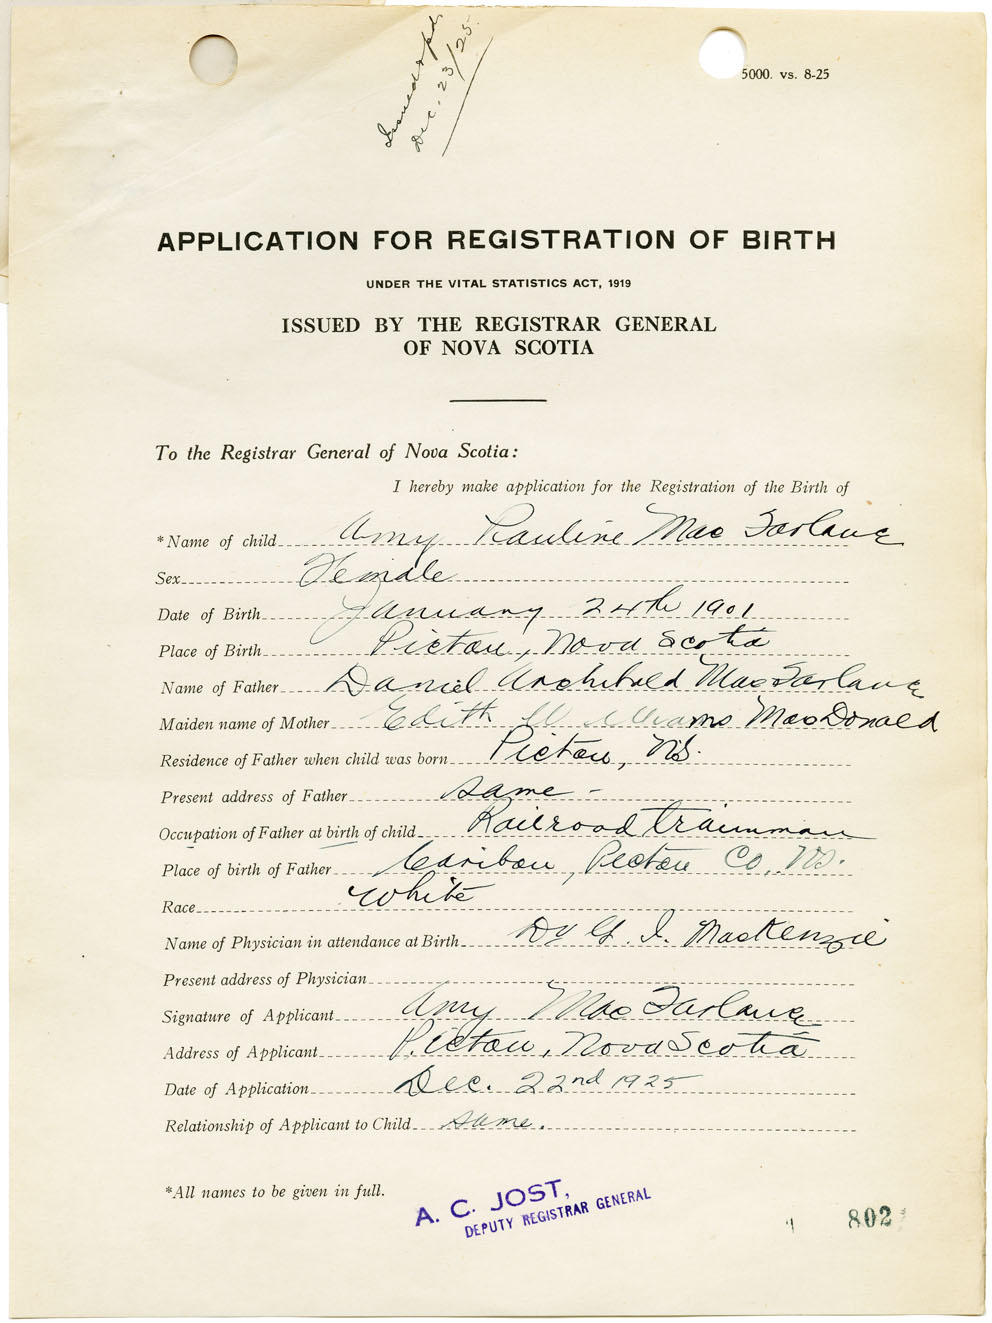 Issued & pd.
Dec. 23/25.
5000. vs. 8-25
APPLICATION FOR REGISTRATION OF BIRTH
UNDER THE VITAL STATISTICS ACT, 1919
ISSUED BY THE REGISTRAR GENERAL
OF NOVA SCOTIA
To the Registrar General of Nova Scotia:
I hereby make application for the Registration of the Birth of
*Name of child Amy Pauline MacFarlane
Sex Female
Date of Birth January 24th 1901
Place of Birth Pictou, Nova Scotia
Name of Father Daniel Archibald MacFarlane
Maiden name of Mother Edith Williams MacDonald
Residence of Father when child was born Pictou, NS.
Present address of Father same -
Occupation of Father at birth of child Railroad trainman
Place of birth of Father Caribou, Pictou Co., NS.
Race White
Name of Physician in attendance at Birth Dr G. I. MacKenzie
Present address of Physician
Signature of Applicant Amy MacFarlane
Address of Applicant Pictou, Nova Scotia
Date of Application Dec. 22nd 1925
Relationship of Applicant to Child same.
*All names to be given in full.
A. C. JOST,
DEPUTY REGISTRAR GENERAL
802